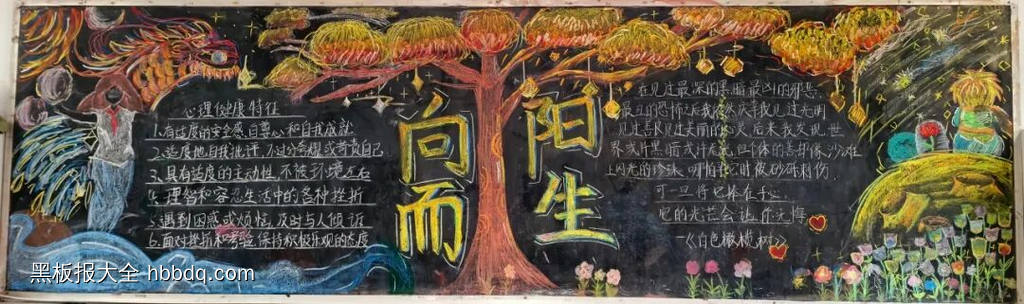 心理健康特征
1.有适度的安全感,自尊心和自我成就
2.适度地自我批评,不过分夸耀或苛责自己
3.具有适度的主动性,不被环境左右
4.理智和容忍生活中的各种挫折
5.遇到困惑或烦恼,及时与人倾诉
6.面对挫折和考验,保持积极乐观的态度
向阳
而生
在见过最深的黑暗最凶的邪恶
最丑的恐怖之后我依然庆幸我见过光明
见过喜
见过美丽的
后来我发现世
界或许黑暗或许
但个体的善却像沙滩
上闪光的珍珠
可一旦将它捧在手心
它的光芒会让你无悔
—《白色橄榄树》
黑板报大全 hbbdq.com